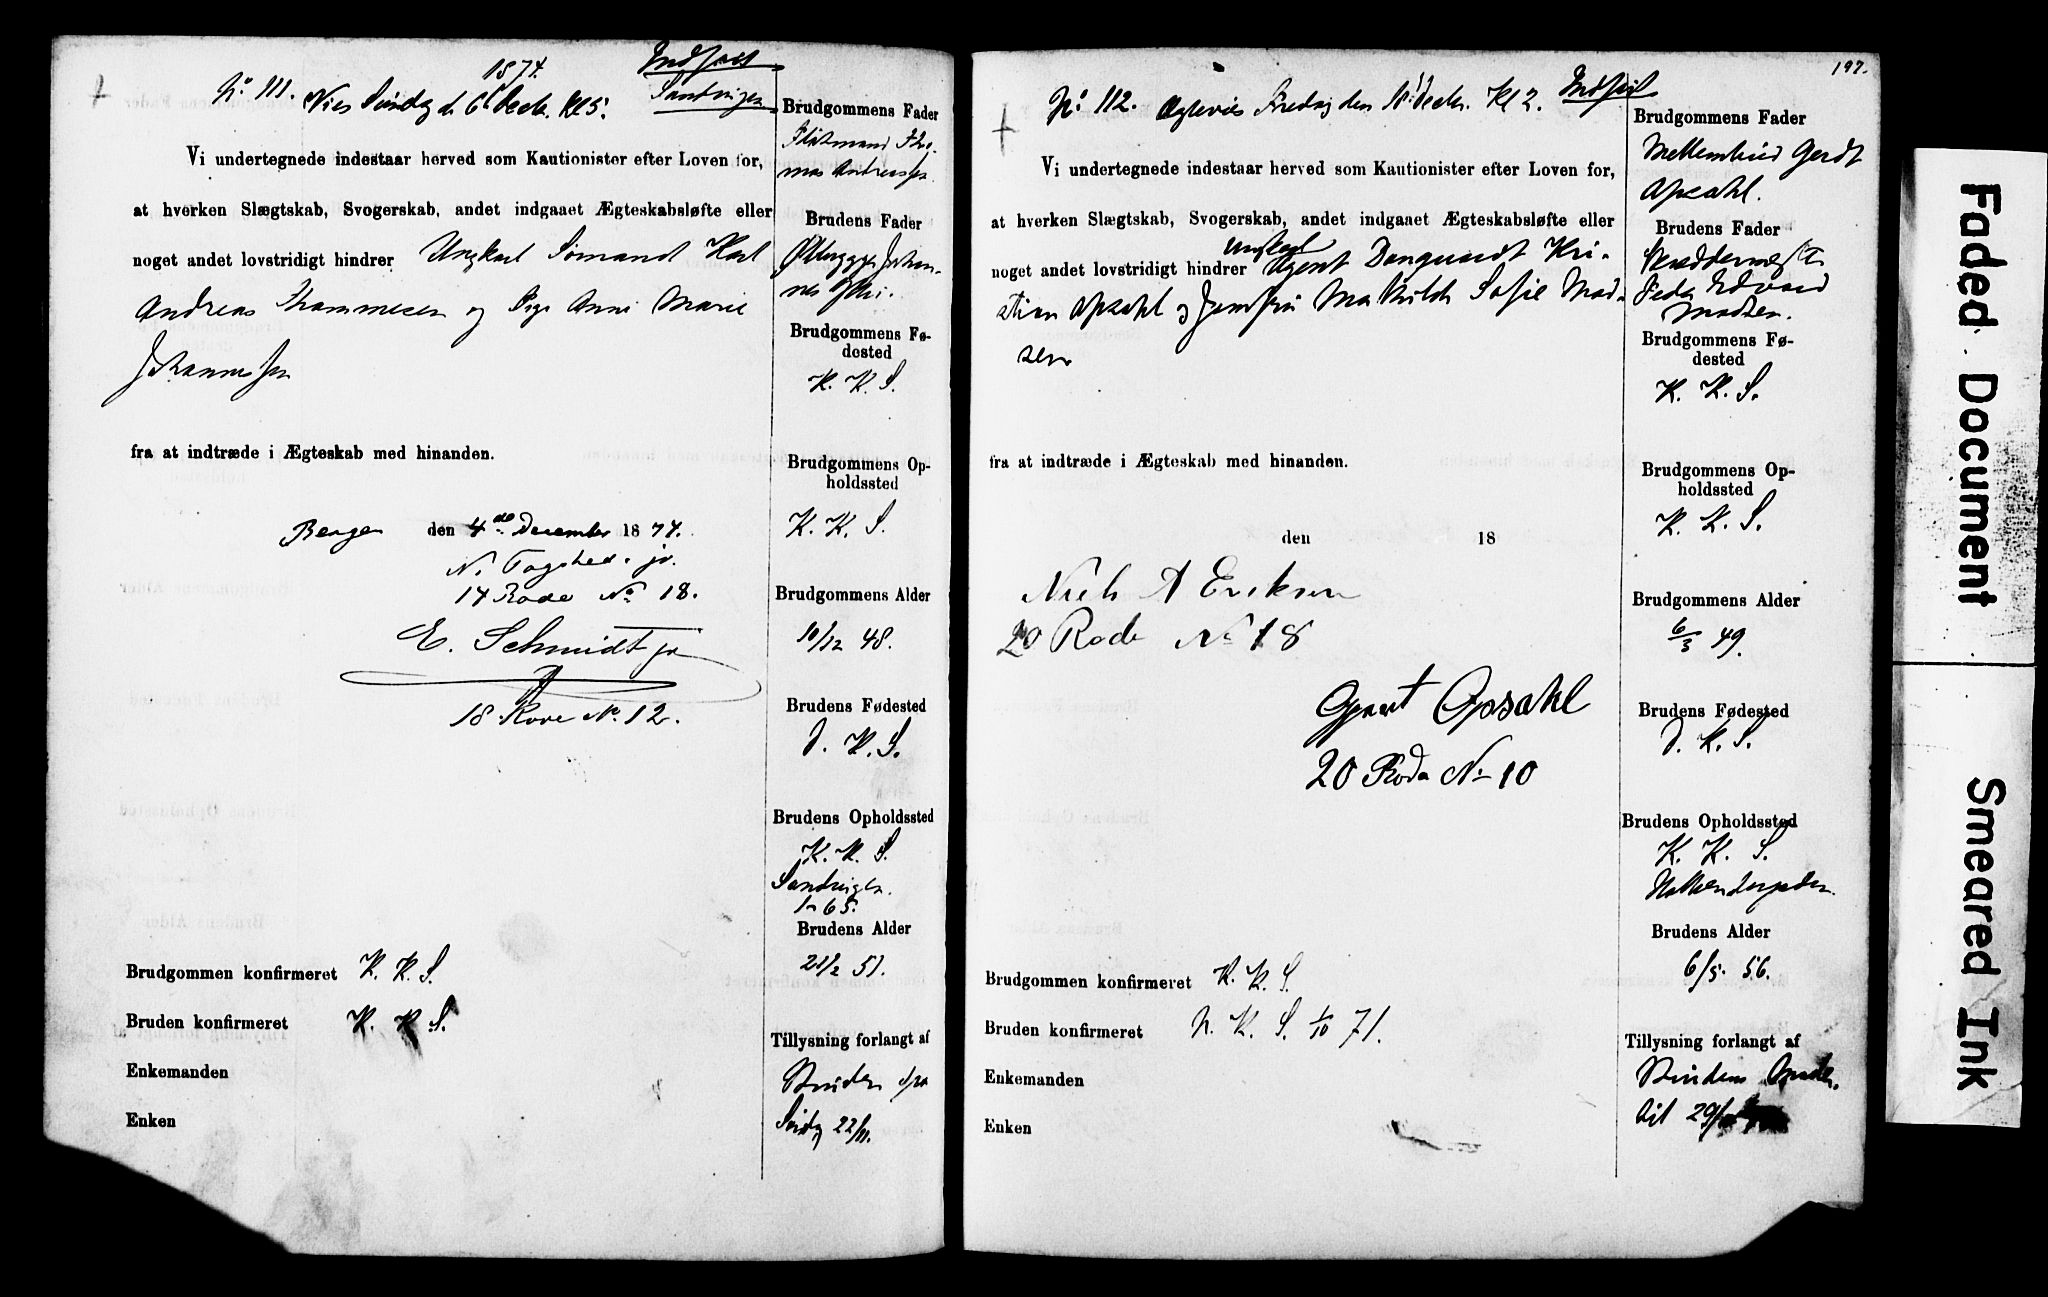 1874.
Indført
No 111. Viet Søndag d 6 Decbr. Kl 5.
Sandvigen
Vi undertegnede indestaar herved som Kautionister efter Loven for,
at hverken Slægtskab, Svogerskab, andet indgaaet Ægteskabsløfte eller
noget andet lovstridigt hindrer Ungkarl Sømand Karl
Andreas Thommesen og Pige Anne Marie
Johannesen
fra at indtræde i Ægteskab med hinanden.
Bergen den 4de December 1874.
14 Rode No 18.
E. Schmidt jr
18 Rode No. 12.
Brudgommen konfirmeret K. K. S.
Bruden konfirmeret K. K. S.
Enkemanden
Enken
Brudgommens Fader
Brudens Fader
Brudgommens Fø-
dested
K. K. S.
Brudgommens Op-
holdssted
K. K. S.
Brudgommens Alder
10/12 48.
Brudens Fødested
D. K. S.
Brudens Opholdssted
K. K. S.
Sandvigen.
1-65.
Brudens Alder
21/2 51.
Tillysning forlangt af
Bruden fra
Søndag 22/11.
197.
No 112. Fredag den 18 Decbr. Kl 2. Indført
Vi undertegnede indestaar herved som Kautionister efter Loven for,
at hverken Slægtskab, Svogerskab, andet indgaaet Ægteskabsløfte eller
Ungkarl
noget andet lovstridigt hindrer Agent Danquardt Kri-
stian Opsahl og Jomfru Mathilde Sofie Mad-
sen
fra at indtræde i Ægteskab med hinanden.
den 18
Niels A Eriksen
20 Rode No 18
Opsahl
20 Rode No 10
Brudgommen konfirmeret K. K. S.
Bruden konfirmeret N. K. S. 1/10 71.
Enkemanden
Enken
Brudgommens Fader
Gerdt
Opsahl.
Brudens Fader
Skræddermester
Peder Edvard
Madsen.
Brudgommens Fø-
dested
K. K. S.
Brudgommens Op-
holdssted
K. K. S.
Brudgommens Alder
6/3 49.
Brudens Fødested
D. K. S.
Brudens Opholdssted
K. K. S.
Brudens Alder
6/5. 56.
Tillysning forlangt af
Brudens
29/
Faded Document
Smeared Ink